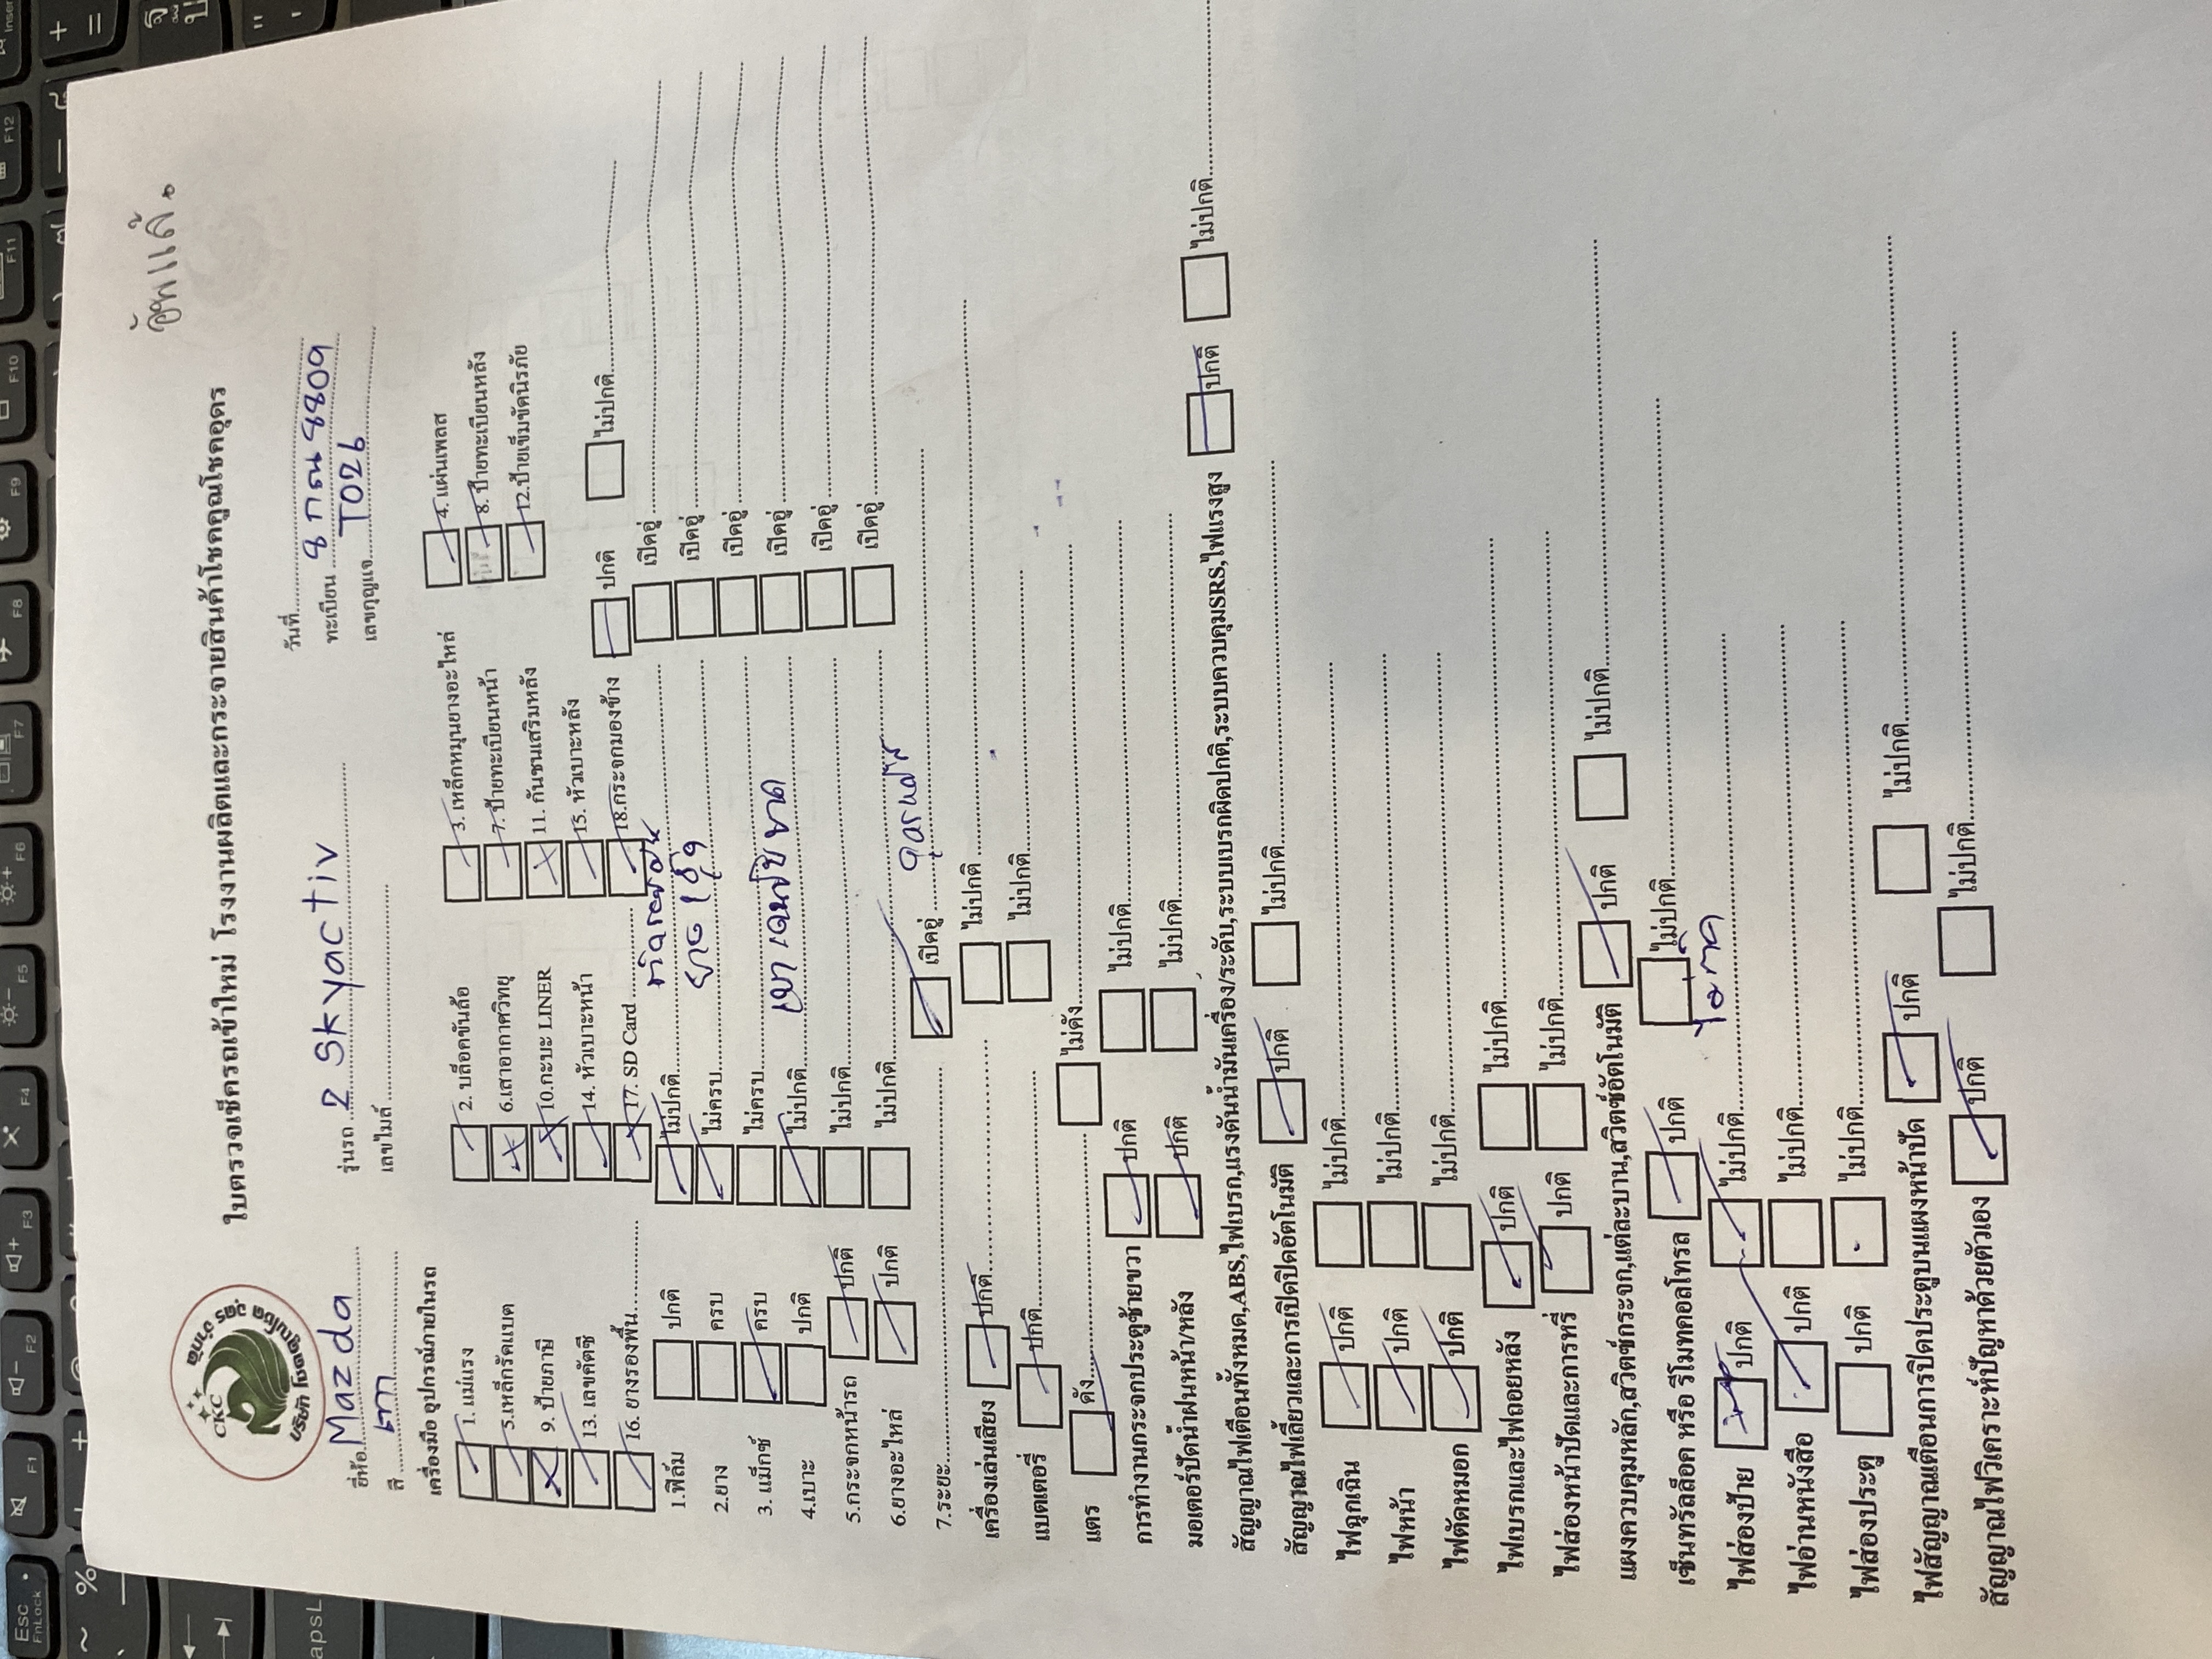 อัพแล้ว
CKC
บริษัท โชคคูณโชค อุดร จำกัด
ใบตรวจเช็ครถเข้าใหม่ โรงงานผลิตและกระจายสินค้าโชคคูณโชคอุดร
วันที่
ยี่ห้อ Mazda รุ่นรถ 2 Skyactiv ทะเบียน 8 กณ 8809
สี เทา เลขไมล์ เลขกุญแจ T026
เครื่องมือ อุปกรณ์ภายในรถ
1. แม่แรง 2. บล็อคขันล้อ 3. เหล็กหมุนยางอะไหล่ 4. แผ่นเพลส
5.เหล็กรัดแบต 6.เสาอากาศวิทยุ 7.ป้ายทะเบียนหน้า 8. ป้ายทะเบียนหลัง
9. ป้ายภาษี 10.กะบะ LINER 11. กันชนเสริมหลัง 12.ป้ายเข็มขัดนิรภัย
13. เลขคัตซี 14. หัวเบาะหน้า 15. หัวเบาะหลัง
16. ยางรองพื้น 17. SD Card 18.กระจกมองข้าง ปกติ ไม่ปกติ
1.ฟิล์ม ปกติ ไม่ปกติ เปิดอู่
2.ยาง ครบ ไม่ครบ เปิดอู่
3. แม็กซ์ ครบ ไม่ครบ เปิดอู่
4.เบาะ ปกติ ไม่ปกติ เปิดอู่
5.กระจกหน้ารถ ปกติ ไม่ปกติ เปิดอู่
6.ยางอะไหล่ ปกติ ไม่ปกติ เปิดอู่
7.ระยะ เปิดอู่
เครื่องเล่นเสียง ปกติ ไม่ปกติ
แบตเตอรี่ ปกติ ไม่ปกติ
แตร ดัง ไม่ดัง
การทำงานกระจกประตูซ้ายขวา ปกติ ไม่ปกติ
มอเตอร์ปัดน้ำฝนหน้า/หลัง ปกติ ไม่ปกติ
สัญญาณไฟเตือนทั้งหมด,ABS,ไฟเบรก,แรงดันน้ำมันเครื่อง/ระดับ,ระบบเบรกผิดปกติ,ระบบควบคุมSRS,ไฟแรงสูง ปกติ ไม่ปกติ
สัญญาณไฟเลี้ยวและการเปิดปิดอัตโนมัติ ปกติ ไม่ปกติ
ไฟฉุกเฉิน ปกติ ไม่ปกติ
ไฟหน้า ปกติ ไม่ปกติ
ไฟตัดหมอก ปกติ ไม่ปกติ
ไฟเบรกและไฟถอยหลัง ปกติ ไม่ปกติ
ไฟส่องหน้าปัดและการหรี่ ปกติ ไม่ปกติ
แผงควบคุมหลัก,สวิตซ์กระจก,แต่ละบาน,สวิตซ์อัตโนมัติ ปกติ ไม่ปกติ
เซ็นทรัลล็อค หรือ รีโมทคอลโทรล ปกติ ไม่ปกติ
ไฟส่องป้าย ปกติ ไม่ปกติ
ไฟอ่านหนังสือ ปกติ ไม่ปกติ
ไฟส่องประตู ปกติ ไม่ปกติ
ไฟสัญญาณเตือนการปิดประตูบนแผงหน้าปัด ปกติ ไม่ปกติ
สัญญาณไฟวิเคราะห์ปัญหาด้วยตัวเอง ปกติ ไม่ปกติ